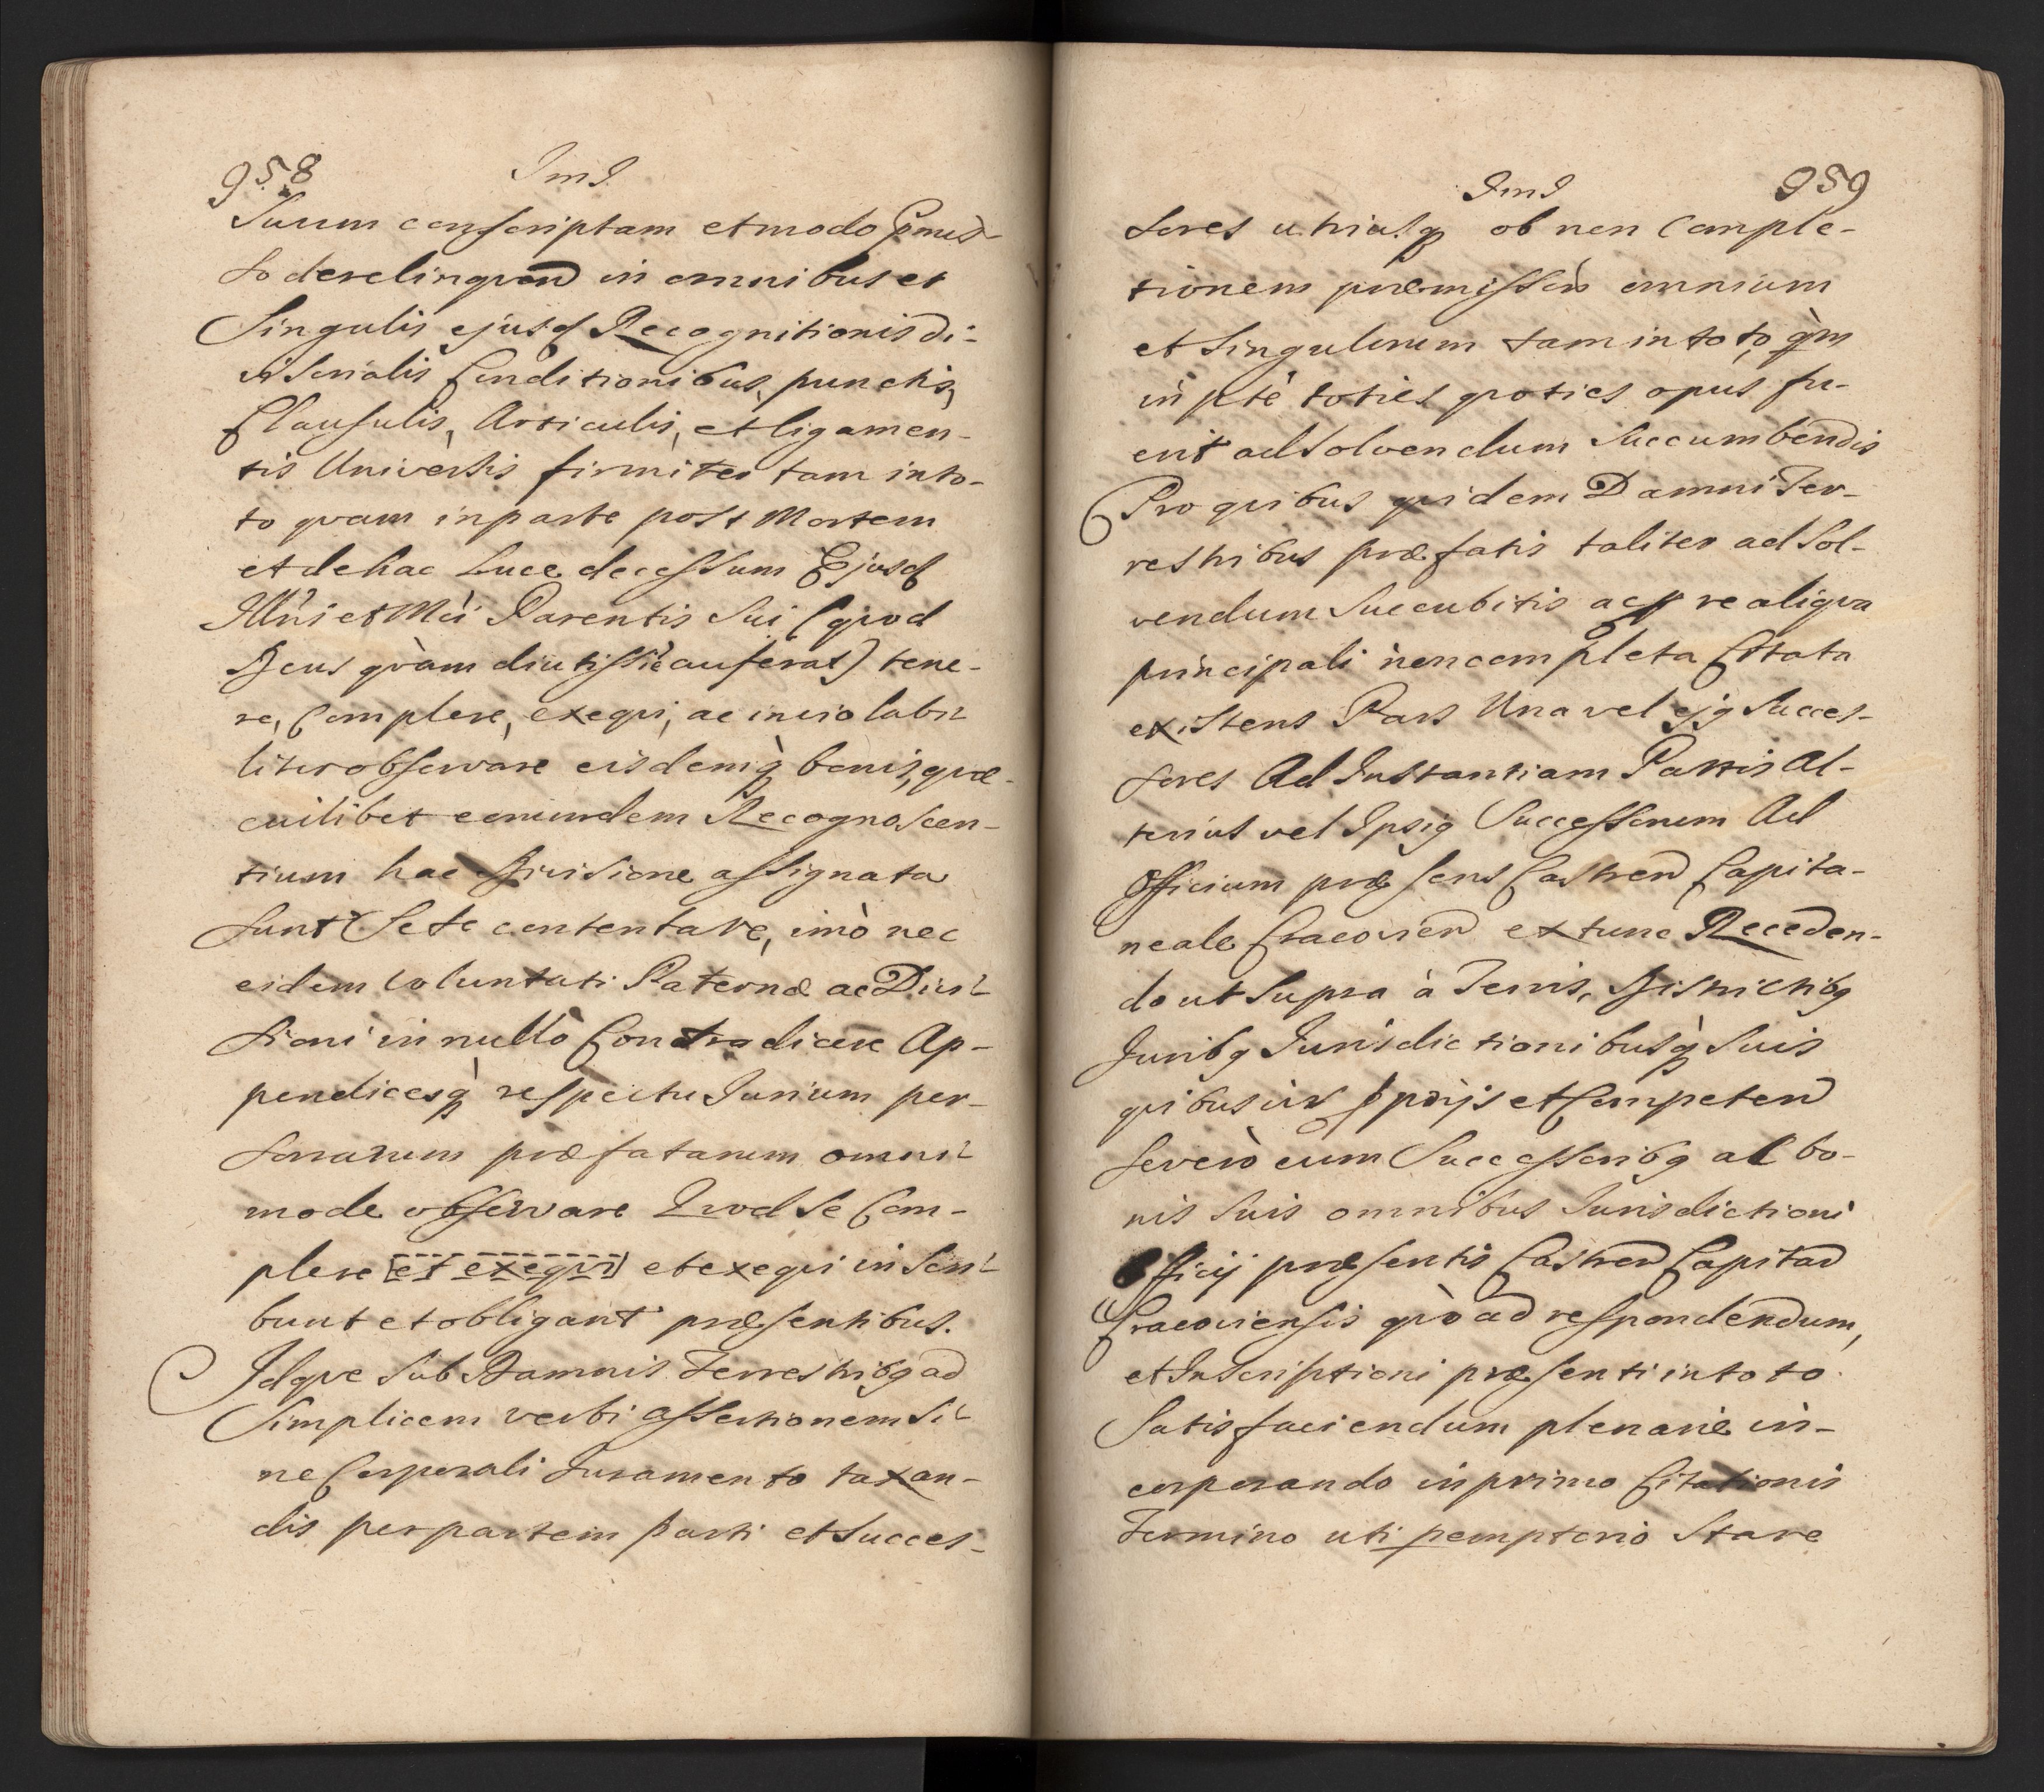 958
ImJ
Suum conscriptam et modo pmis-
so derelinquend in omnibus et
Singulis ejusd Recognitionis di-
visorialis Conditionibus, punctis,
Clausulis, Articulis, et ligamen-
tis Universis firmiter tam in to-
to qvam in parte post Mortem
et de hac Luce decessum Ejusd
Illris et Mci Parentis sui (qvod
Deus qvàm diutissie auferat) tene-
re, Complere, exeqvi, ac inviolabi-
liter observare eisdemq bonis, qvæ
cuilibet eorundem Recognoscen-
tium hac Divisione assignata
sunt Se te contentare, imò nec
eidem Voluntati Paternæ ac Divi-
sioni in nullo Contradicere Ap-
pendicesq respectu Jurium per-
sonarum præfatarum omni-
mode observare Qvod se Com-
plere [et exeqvi] et exeqvi inscri-
bunt et obligant præsentibus.
Idqve Sub Damnis Terrestribq ad
Simplicem verbi assertionem si-
ne Corporali Juramento taxan-
dis per partem parti et Succes-
959
ImJ
sores utriusq ob non Comple-
tionem præmissor omnium
et Singulorum tam in toto, qm
in pte toties qvoties opus fu-
erit ad Solvendum Succumbendis
Pro qvibus qvidem Damni Ter-
restribus præfatis taliter ad Sol-
vendum Succubitis acp re aliqva
principali non completa Citata
existens Pars Una vel ejq Succes-
sores Ad Instantiam Partis Al-
terius vel Ipsiq Successorum Ad
Officium præsens Castren Capita-
neale Cracovien ex tunc Receden-
do ut Supra à Terris, Districtibq
Juribq Jurisdictionibusq Suis
qvibusvis pprijs et Competen
Severò cum Successoribq ac bo-
nis Suis omnibus Jurisdictioni
Officij præsentis Castren Capitan
Cracoviensis qvò ad respondendum,
et Inscriptioni præsenti in toto
Satisfaciendum plenarie in-
corporando in primo Citationis
Termino uti pemptorio Stare